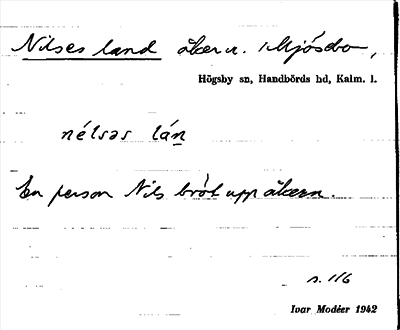 Nilses land åker n. Mjösebo,
Högsby sn, Handbörds hd, Kalm. l.
nélsəs lán
En person Nils bröt upp åkern.
s. 116
Ivar Modéer 1942